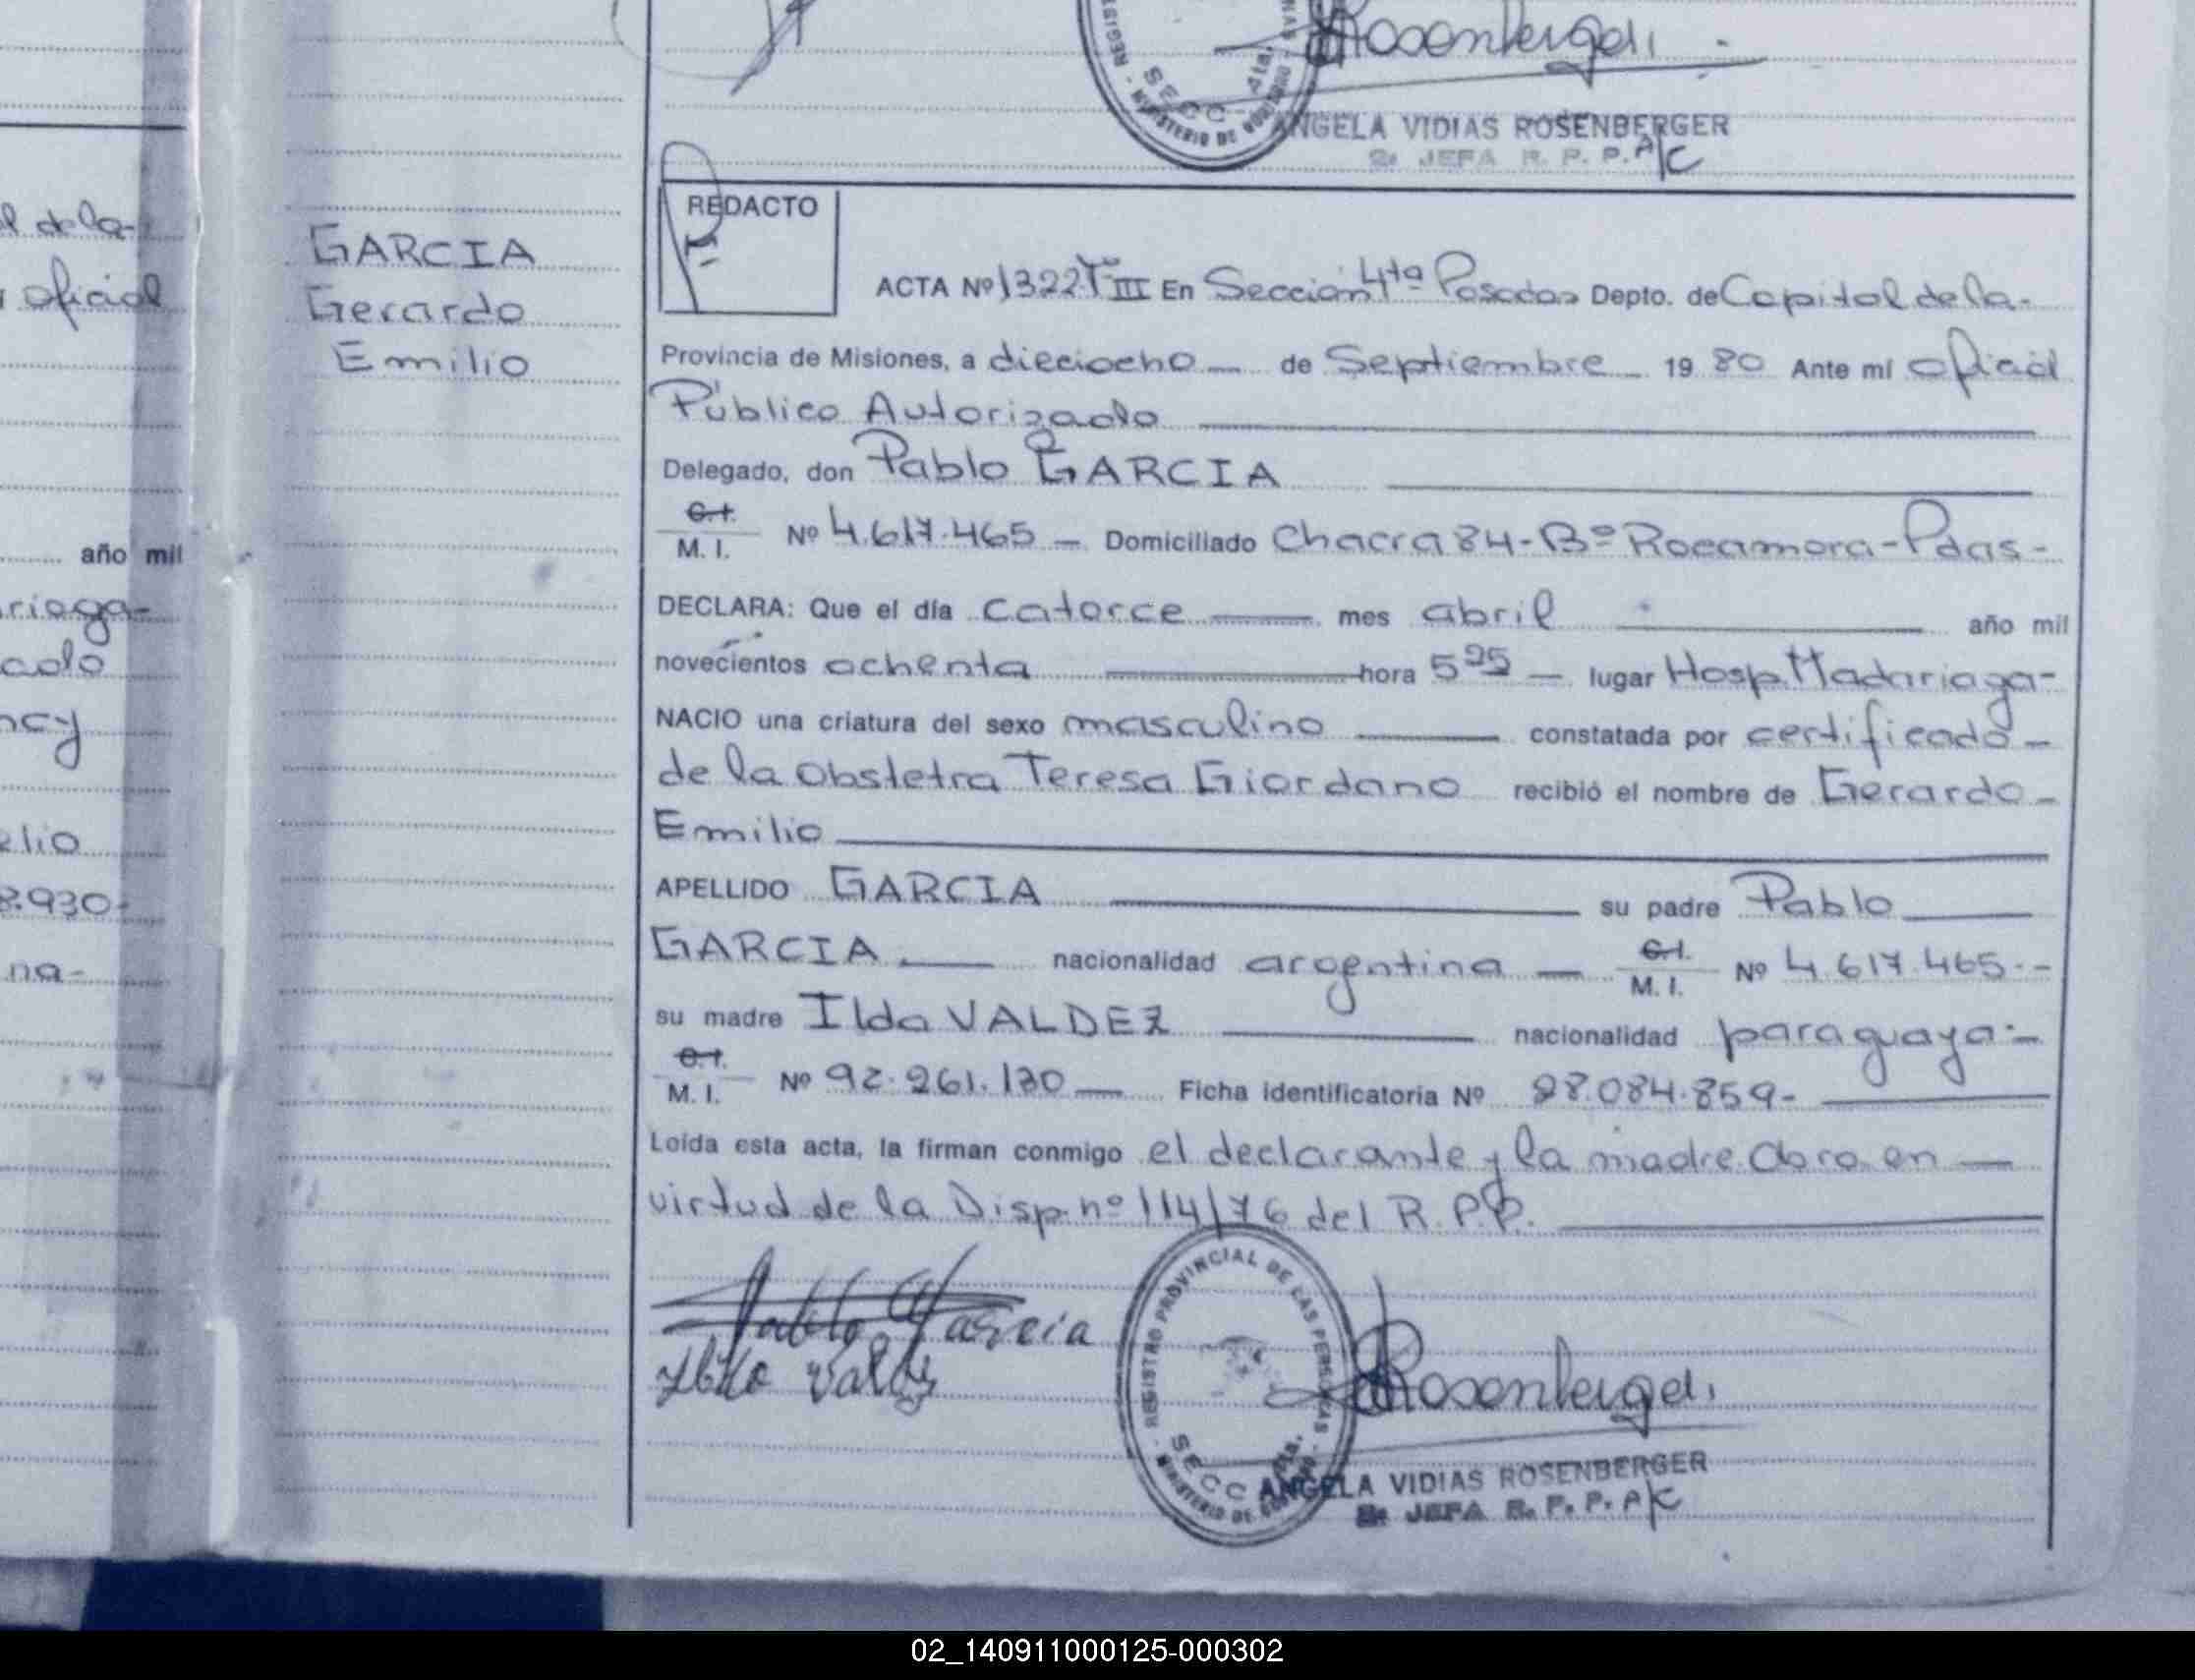 l de la-
oficial
año mil
riaga-
cado
ncy
elio
8.930-
na-
GARCIA
Gerardo
Emilio
Rosenberger
REGIS
NAS
SECC 4ta.
MINISTERIO DE GOBIERNO
ANGELA VIDIAS ROSENBERGER
JEFA R. P. P. A/C
REDACTO
ACTA Nº 1322 Tº III En Sección 4ta Posadas Depto. de Capital de la-
Provincia de Misiones, a dieciocho — de Septiembre — 19 80 Ante mí oficial
Público Autorizado
Delegado, don Pablo GARCIA
C.I.
M. I. Nº 4.617.465 — Domiciliado Chacra 84-Bº Rocamora-Pdas-
DECLARA: Que el día catorce — mes abril — año mil
novecientos ochenta — hora 5 25 — lugar Hosp. Madariaga-
NACIO una criatura del sexo masculino — constatada por certificado —
de la Obstetra Teresa Giordano recibió el nombre de Gerardo-
Emilio
APELLIDO GARCIA — su padre Pablo
GARCIA — nacionalidad argentina — C.I. M. I. Nº 4.617.465.-
su madre Ilda VALDEZ — nacionalidad paraguaya-
C.I.
M. I. Nº 92.261.130 — Ficha identificatoria Nº 28.084.859-
Leída esta acta, la firman conmigo el declarante y la madre. Obro en —
virtud de la Disp. nº 114/76 del R.P.P.
Pablo Garcia
Ilda Valdez
REGISTRO PROVINCIAL DE LAS PERSONAS
SECC 4ta.
MINISTERIO DE GOBIERNO
Rosenberger
ANGELA VIDIAS ROSENBERGER
JEFA R. P. P. A/C
02_140911000125-000302